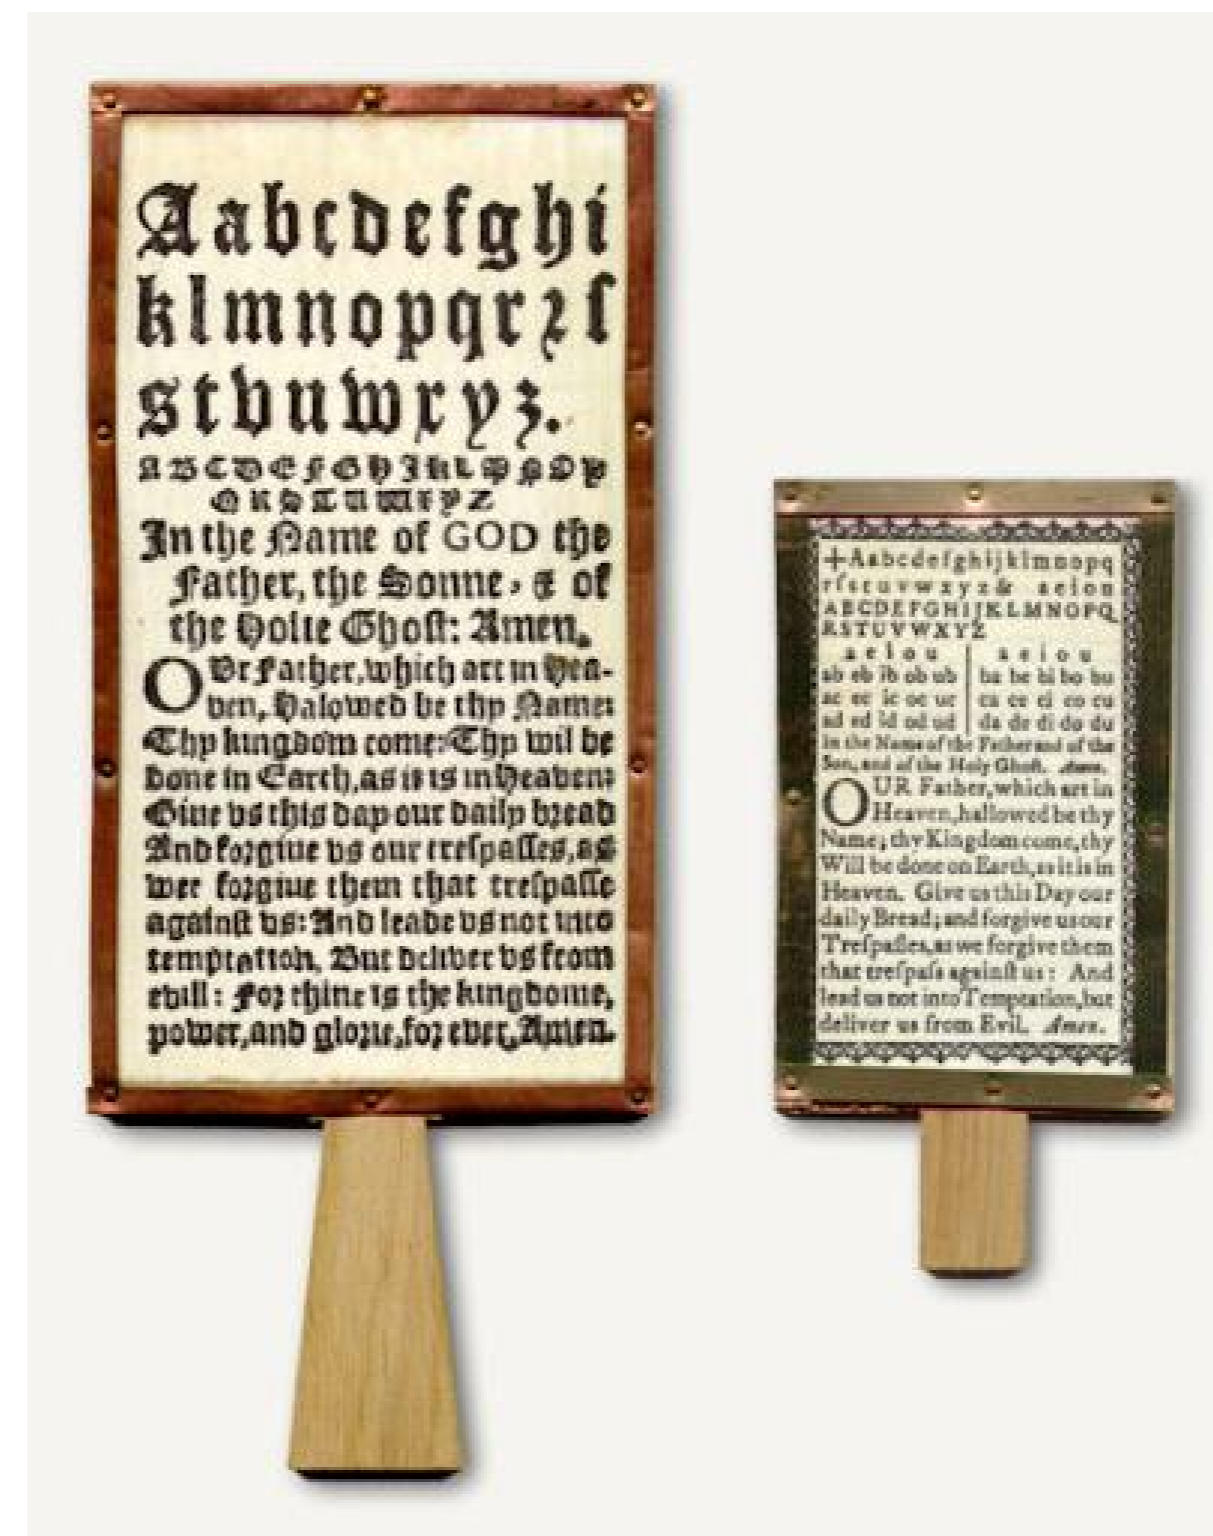 Aabcdefghi
klmnopqrꝛſ
stvuwxyz.
ABCDEFGHIKLMNOP
QRSTUWXYZ
In the Name of GOD the
Father, the Sonne, & of
the Holie Ghoſt: Amen.
OVr Father, which art in Hea-
ven, Halowed be thy Name:
Thy kingdom come: Thy wil be
done in Earth, as it is in Heaven:
Giue vs this day our daily bꝛead
And foꝛgiue vs our treſpaſſes, as
wee foꝛgiue them that treſpaſſe
againſt vs: And leade vs not into
temptation, But deliver vs from
evill: Foꝛ thine is the kingdome,
power, and gloꝛie, foꝛ ever, Amen.
+Aabcdefghijklmnopq
rſstuvwxyz& aeiou
ABCDEFGHIJKLMNOPQ
RSTUVWXYZ
a e i o u | a e i o u
ab eb ib ob ub | ba be bi bo bu
ac ec ic oc uc | ca ce ci co cu
ad ed id od ud | da de di do du
In the Name of the Father and of the
Son, and of the Holy Ghoſt. Amen.
OUR Father, which art in
Heaven, hallowed be thy
Name; thy Kingdom come, thy
Will be done on Earth, as it is in
Heaven. Give us this Day our
daily Bread; and forgive us our
Treſpaſſes, as we forgive them
that treſpaſs againſt us: And
lead us not into Temptation, but
deliver us from Evil. Amen.